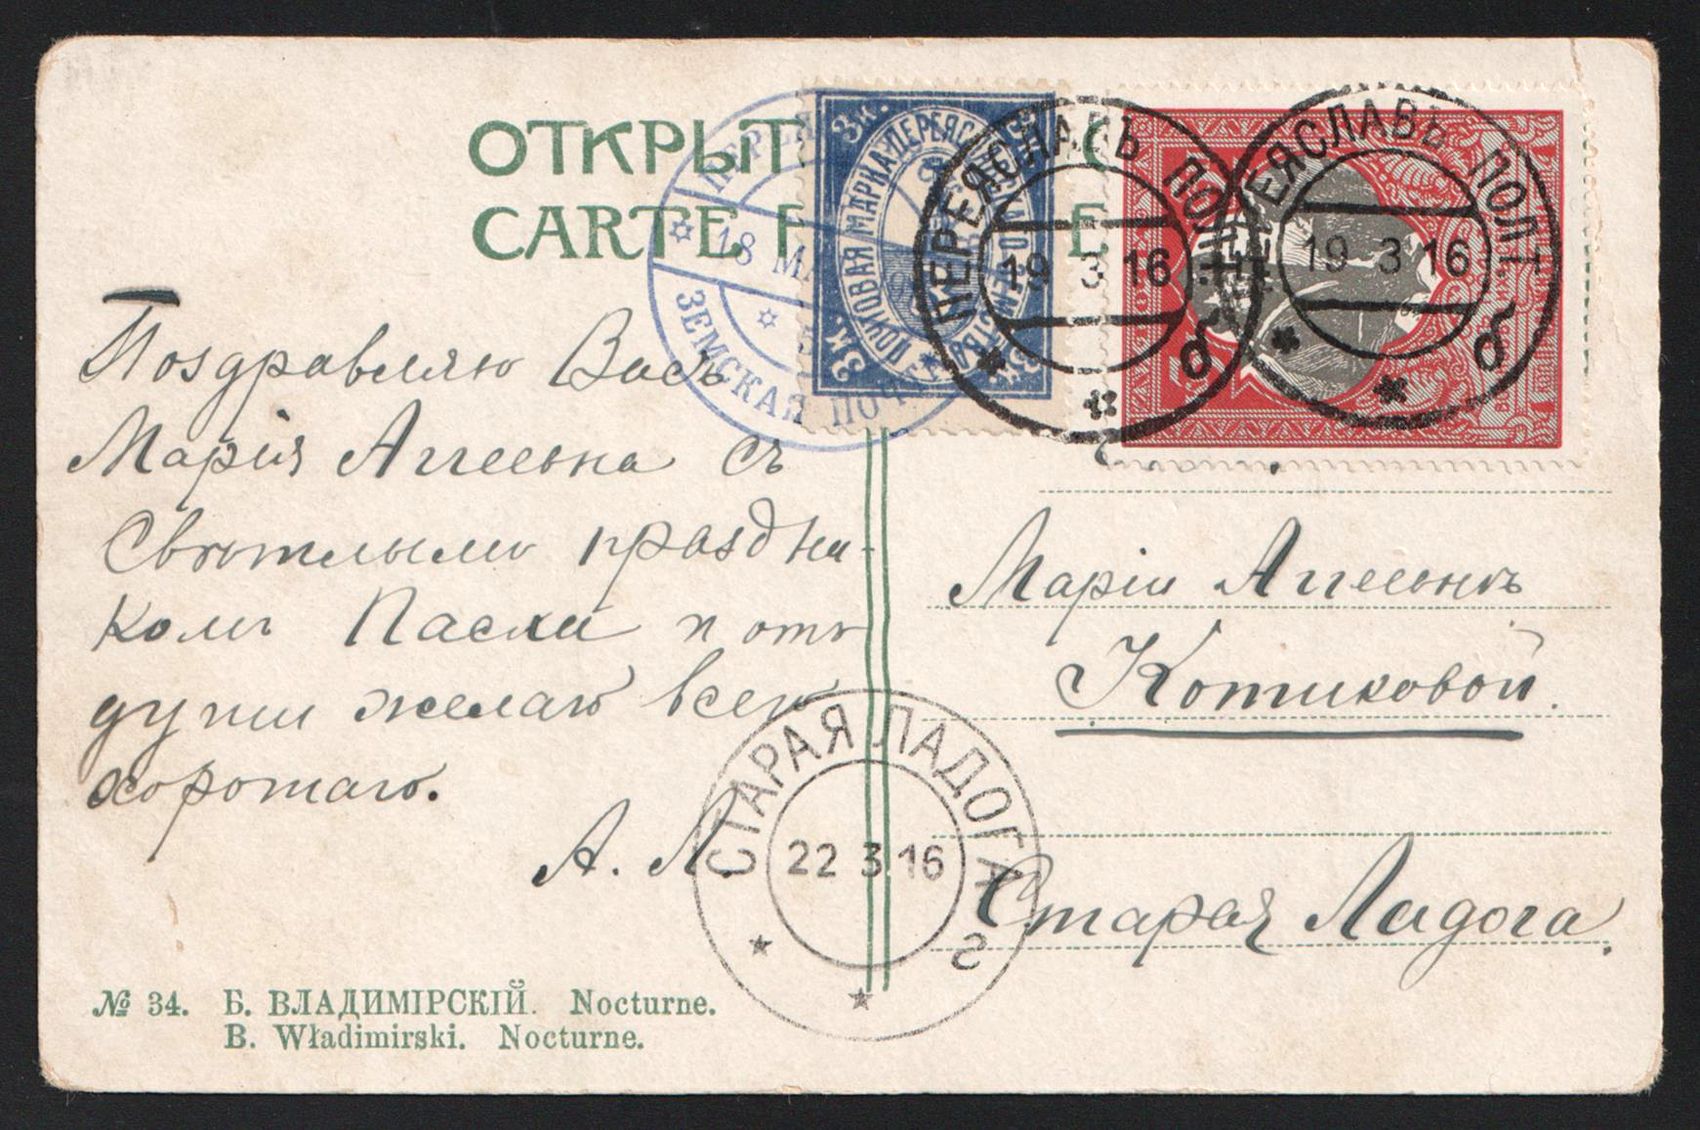 ОТКРЫТ
CARTE P E
ПЕРЕЯ
18 МА
ЗЕМСКАЯ ПОЧ
3к. 3к. 3к.
ПОЧТОВАЯ МАРКА ПЕРЕЯС ЗЕМСТВА
ПЕРЕЯСЛАВЪ ПОЛТ б
19 3 16
ПЕРЕЯСЛАВЪ ПОЛТ б
19 3 16
Поздравляю Васъ
Марія Аггеевна съ
Свѣтлымъ праздни-
комъ Пасхи и отъ
души желаю всего
хорошаго.
А. Л.
Маріи Аггеевнѣ
Котиковой.
Старая Ладога.
СТАРАЯ ЛАДОГА г
22 3 16
№ 34. Б. ВЛАДИМІРСКІЙ. Nocturne.
B. Władimirski. Nocturne.